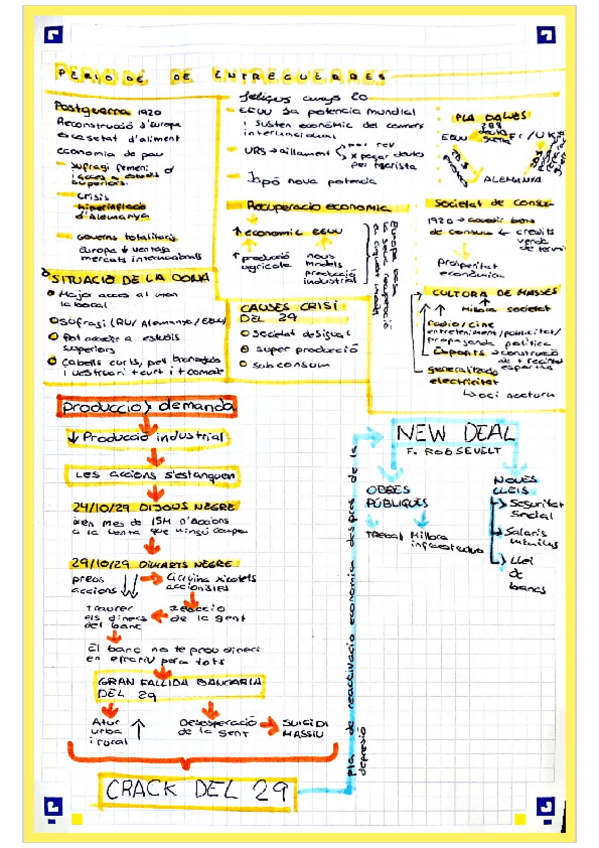 PERIODE DE ENTREGUERRES
Postguerra 1920
Reconstrucció d'Europa
escasetat d'aliment
economia de pau
- sufragi femení i
acces a estudis
superiors.
- Crisis
hiperinflació
d'Alemanya
- Governs totalitaris
Europa ↓ ventatja
mercats internacionals
feliços anys 20
- EEUU 1a potencia mundial
i susten econòmic del comerç
internacional
- URS → aillament
por rev
x pagar deuta
per tsarista
- Japó nova potencia
PLA DAWES
EEUU Fr/UK
ALEMANYA
Recuperacio economica
↑ economic EEUU
↑ producció
agricola
nous
models
producció
industrial
Societat de consum
1920 →
de consum ↳ credits
venda
de termini
Prosperitat
econòmica
CULTURA DE MASSES
Millora societat
radio/cine
entreteniment/publicitat/
propaganda política
Esports → construcció
de + recintes
esportius
generalitzada
electricitat
↳ oci nocturn
SITUACIÓ DE LA DONA
Major acces al mon
laboral
Sufragi (RU/Alemanya/EEUU)
Pot accedir a estudis
superiors
Cabells curts, pell bronzejada
i vestuari + curt i + comode
CAUSES CRISI
DEL 29
Societat desigual
super producció
subconsum
producció > demanda
↓ Producció industrial
Les accions s'estanquen
24/10/29 DIJOUS NEGRE
mes de 15M d'accions
a la venta que ningú compra
29/10/29 DIMARTS NEGRE
preus
accions ↓↓
→ xicotets
accionistes
reacció
de la gent
traurer
els diners
del banc
El banc no te prou diners
en efectiu para tots
GRAN FALLIDA BANCARIA
DEL 29
Atur ↑
urba
i rural
Desesperació
de la gent
→ SUICIDI
MASSIU
CRACK DEL 29
pla de reactivacio economica despres de la
depresió
NEW DEAL
F. ROOSEVELT
OBRES
PÚBLIQUES
Treball
Millora
infraestructura
NOVES
LLEIS
Seguritat
social
Salaris
minims
Llei
de
bancs